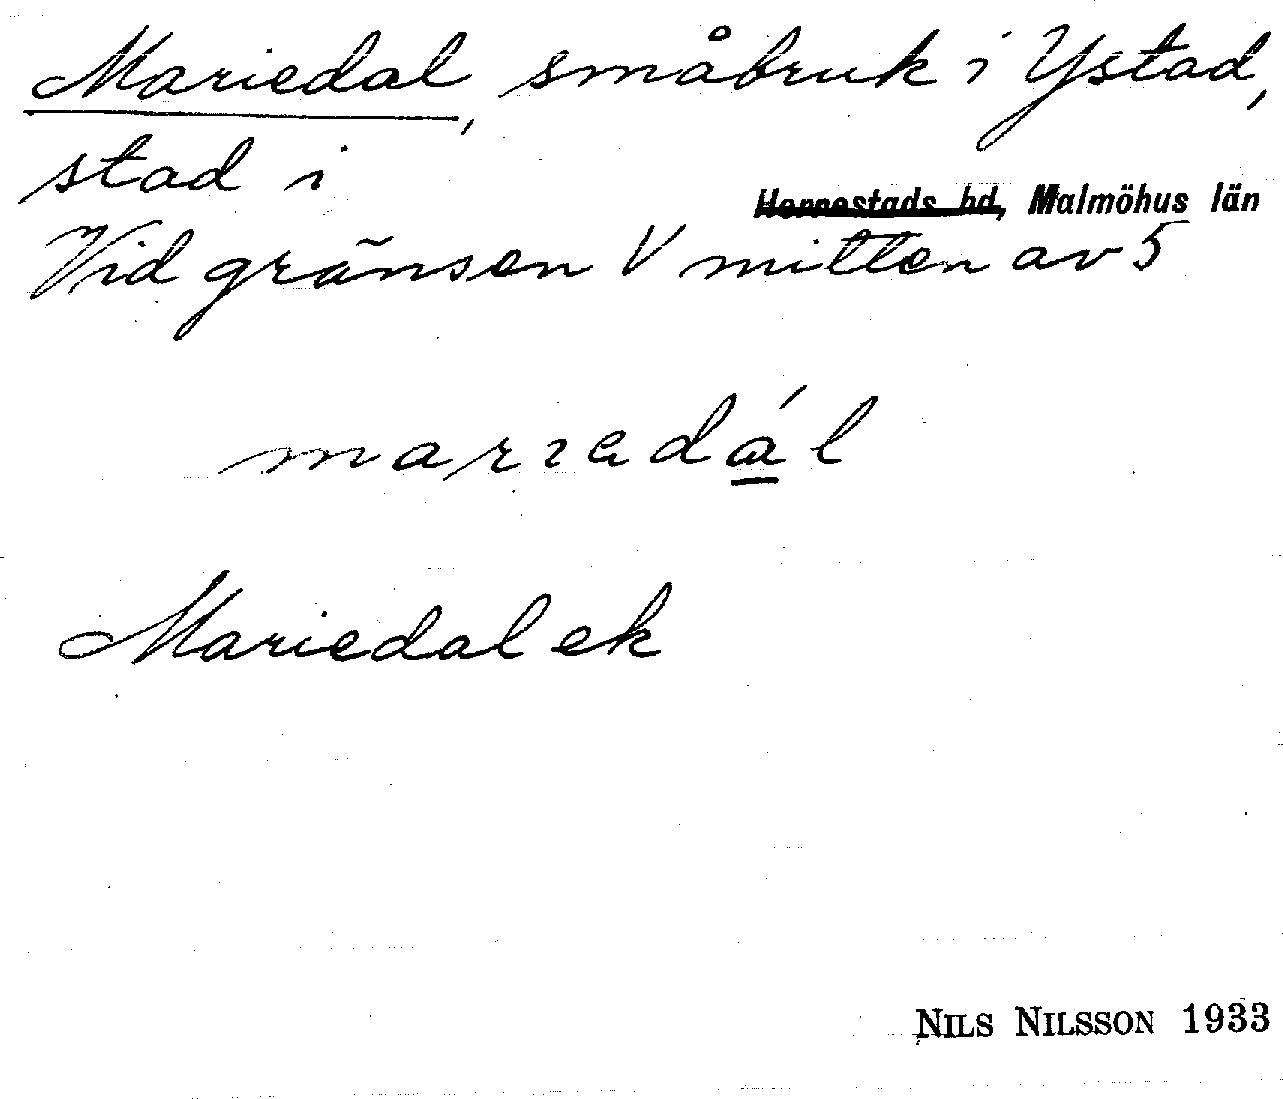 Mariedal, småbruk i Ystad,
stad i
Herrestads hd, Malmöhus län
Vid gränsen V mitten av 5
marıadál
Mariedal ek
NILS NILSSON 1933